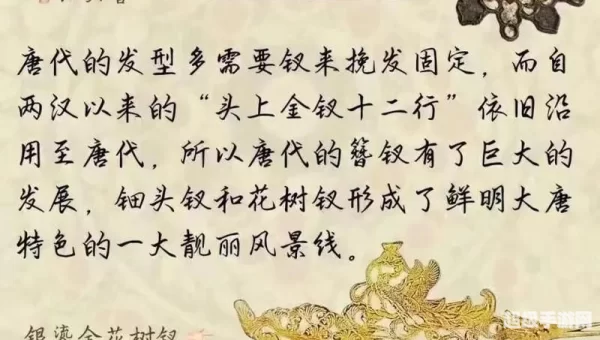 唐代的发型多需要钗来挽发固定，而自
两汉以来的“头上金钗十二行”依旧沿
用至唐代，所以唐代的簪钗有了巨大的
发展，钿头钗和花树钗形成了鲜明大唐
特色的一大靓丽风景线。
银鎏金花树钗
超级手游网